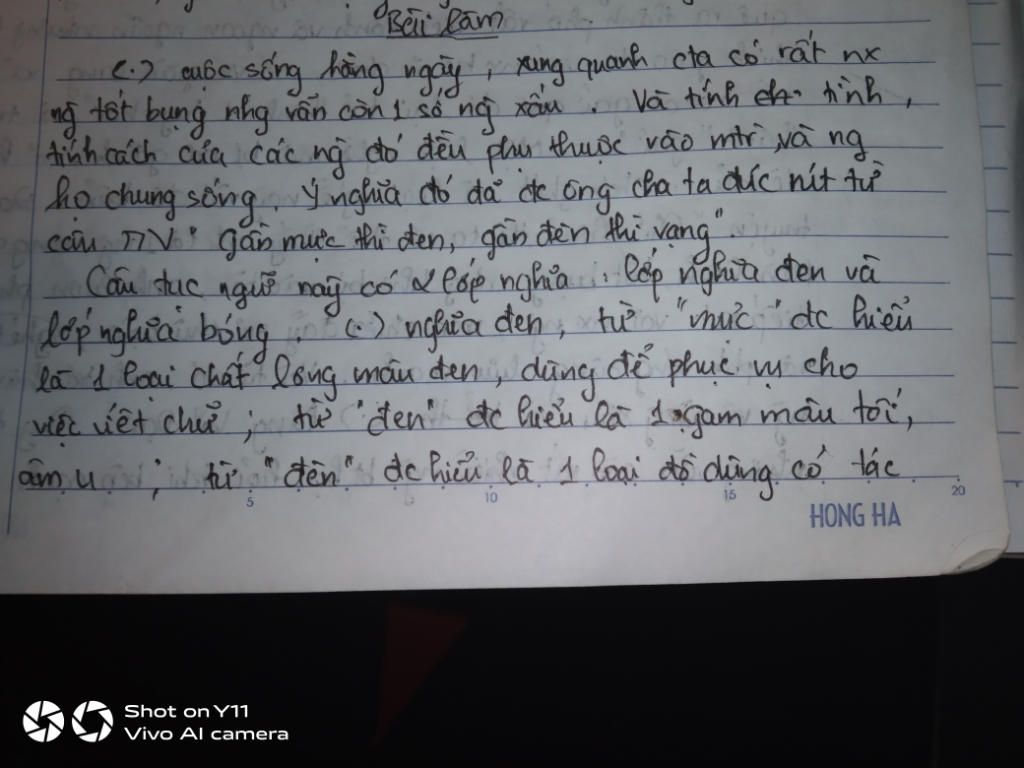 Bài làm
(.) cuộc sống hằng ngày, xung quanh cta có rất nx
ng tốt bụng nhg vẫn còn 1 số ng xấu. Và tính tình,
tính cách của các ng đó đều phụ thuộc vào mtr và ng
họ chung sống. Ý nghĩa đó đã đc ông cha ta đúc rút từ
câu TNV "Gần mực thì đen, gần đèn thì rạng".
Câu tục ngữ này có 2 lớp nghĩa: lớp nghĩa đen và
lớp nghĩa bóng. (.) nghĩa đen, từ "mực" đc hiểu
là 1 loại chất lỏng màu đen, dùng để phục vụ cho
việc viết chữ; từ "đen" đc hiểu là 1 gam màu tối,
âm u; từ "đèn" đc hiểu là 1 loại đồ dùng có tác
5 10 15 20
HONG HA
Shot on Y11
Vivo AI camera